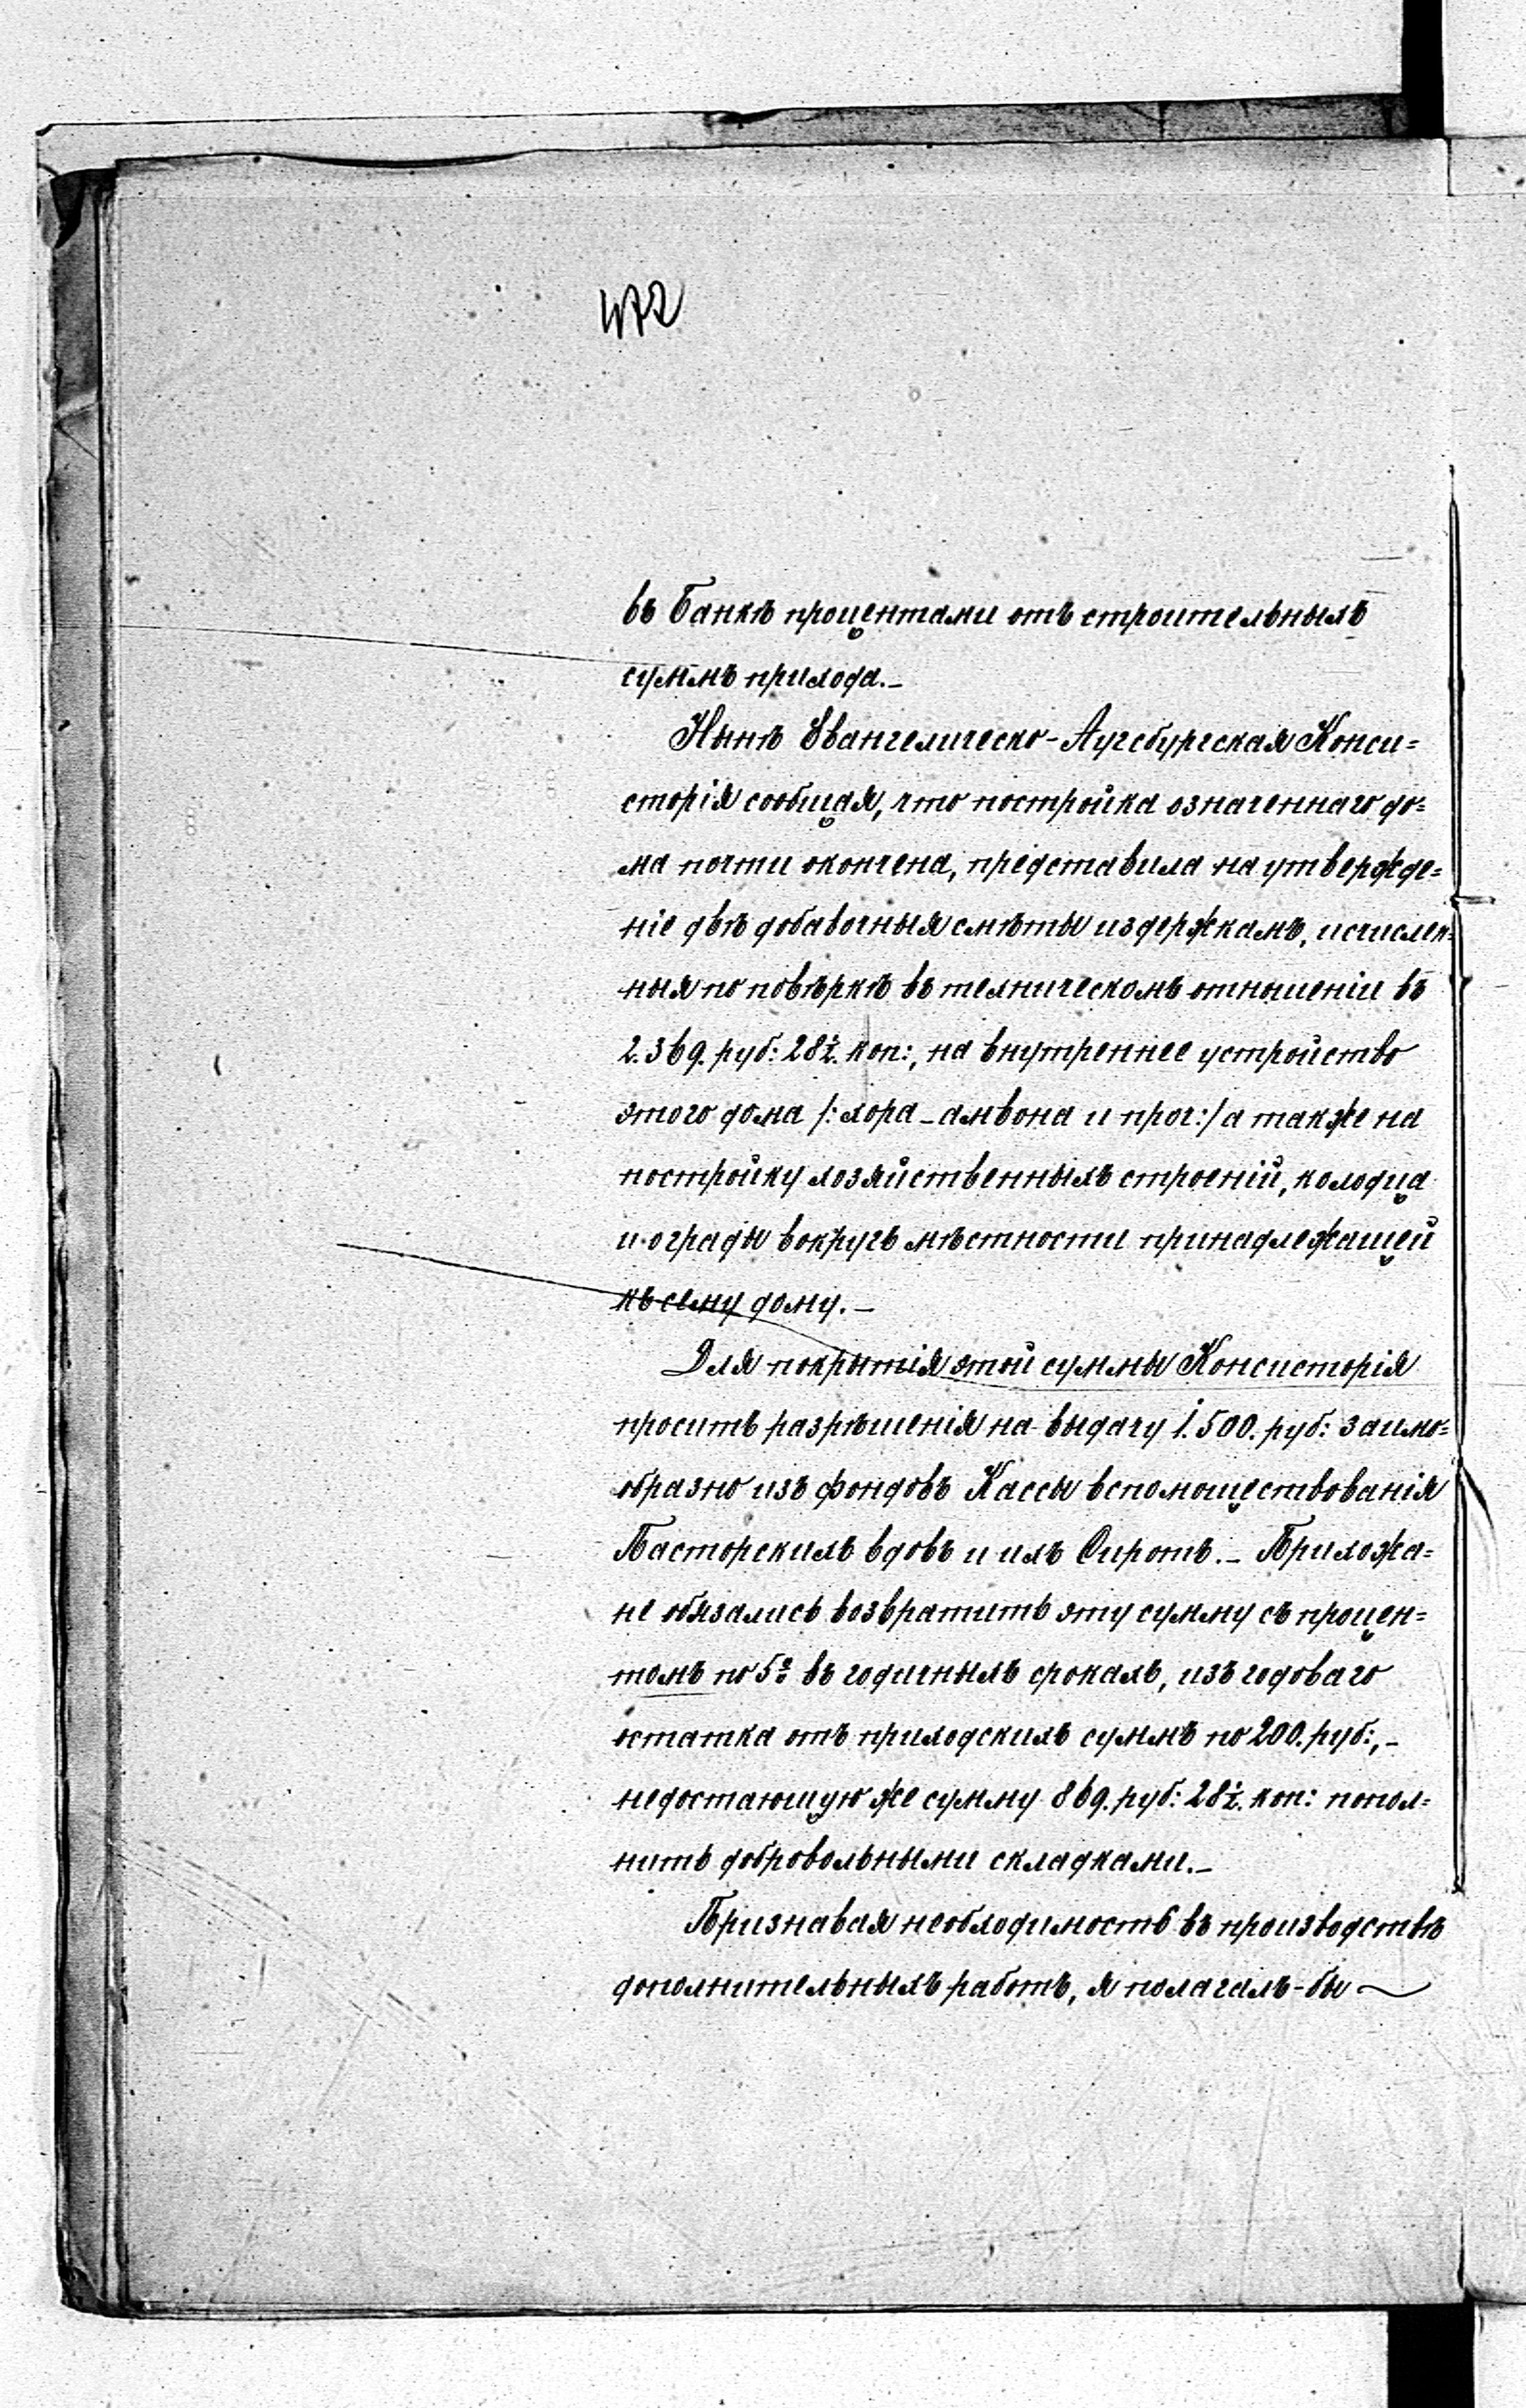 472
въ Банкѣ процентами отъ строительныхъ
суммъ прихода.—
Нынѣ Евангелическо-Аугсбургская Конси=
сторія сообщая, что постройка означеннаго до=
ма почти окончена, представила на утвержде=
ніе двѣ добавочныя смѣты издержкамъ, исчислен=
ныя по повѣркѣ въ техническомъ отношеніи въ
2.369. руб: 28½. коп:, на внутреннее устройство
этого дома /: хора - амвона и проч:/ а также на
постройку хозяйственныхъ строеній, колодца
и ограды вокругъ мѣстности принадлежащей
къ сему дому.—
Для покрытія этой суммы Консисторія
проситъ разрѣшенія на выдачу 1.500. руб: заимо=
образно изъ фондовъ Кассы вспомоществованія
Пасторскихъ вдовъ и ихъ Сиротъ.— Прихожа=
не обязались возвратить эту сумму съ процен=
томъ по 5% въ годичныхъ срокахъ, изъ годоваго
остатка отъ приходскихъ суммъ по 200. руб:,—
недостающую же сумму 869. руб: 28½. коп: попол=
нить добровольными складками.—
Признавая необходимость въ производствѣ
дополнительныхъ работъ, я полагалъ-бы